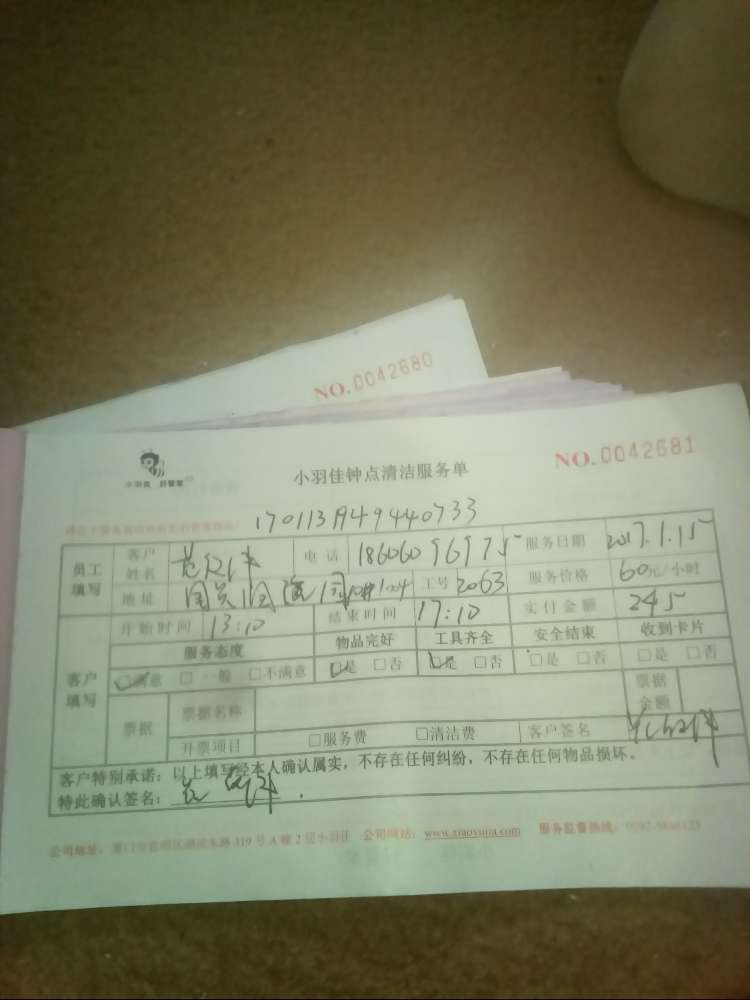 NO.0042680
小羽佳 好管家
小羽佳钟点清洁服务单
NO.0042681
170113A49440733
员工填写 客户姓名 电话 18606096975 服务日期 2017.1.15
地址 工号 2063 服务价格 60元/小时
客户填写 开始时间 13:10 结束时间 17:10 实付金额 245
服务态度 物品完好 工具齐全 安全结束 收到卡片
满意 □ 一般 □不满意 是 □否 是 □否 □是 □否 □是 □否
票据 票据名称 票据金额
开票项目 □服务费 □清洁费 客户签名
客户特别承诺：以上填写经本人确认属实，不存在任何纠纷，不存在任何物品损坏。
特此确认签名：
公司地址：厦门市思明区湖滨东路319号A幢2层小羽佳 公司网站：www.xiaoyujia.com 服务监督热线：